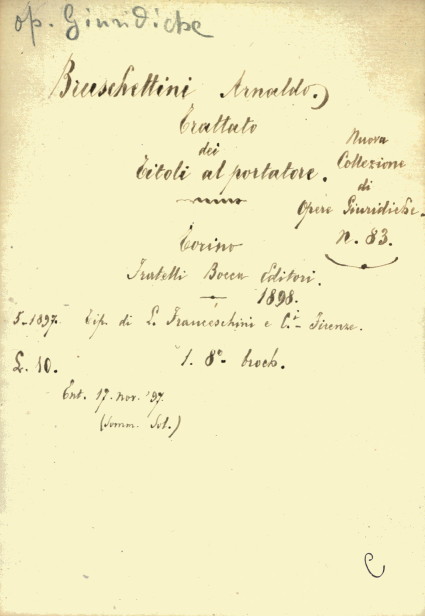 op. Giuridiche
Bruschettini Arnaldo)
Trattato
dei
Titoli al portatore.
Nuova
Collezione
di
Opere Giuridiche.
N. 83.
Torino
Fratelli Bocca Editori.
1898.
5-1897. Tip. di L. Franceschini e C.i - Firenze.
L. 10. 1. 8º broch.
Ent. 17. nov. '97.
(Somm. Sol.)
C